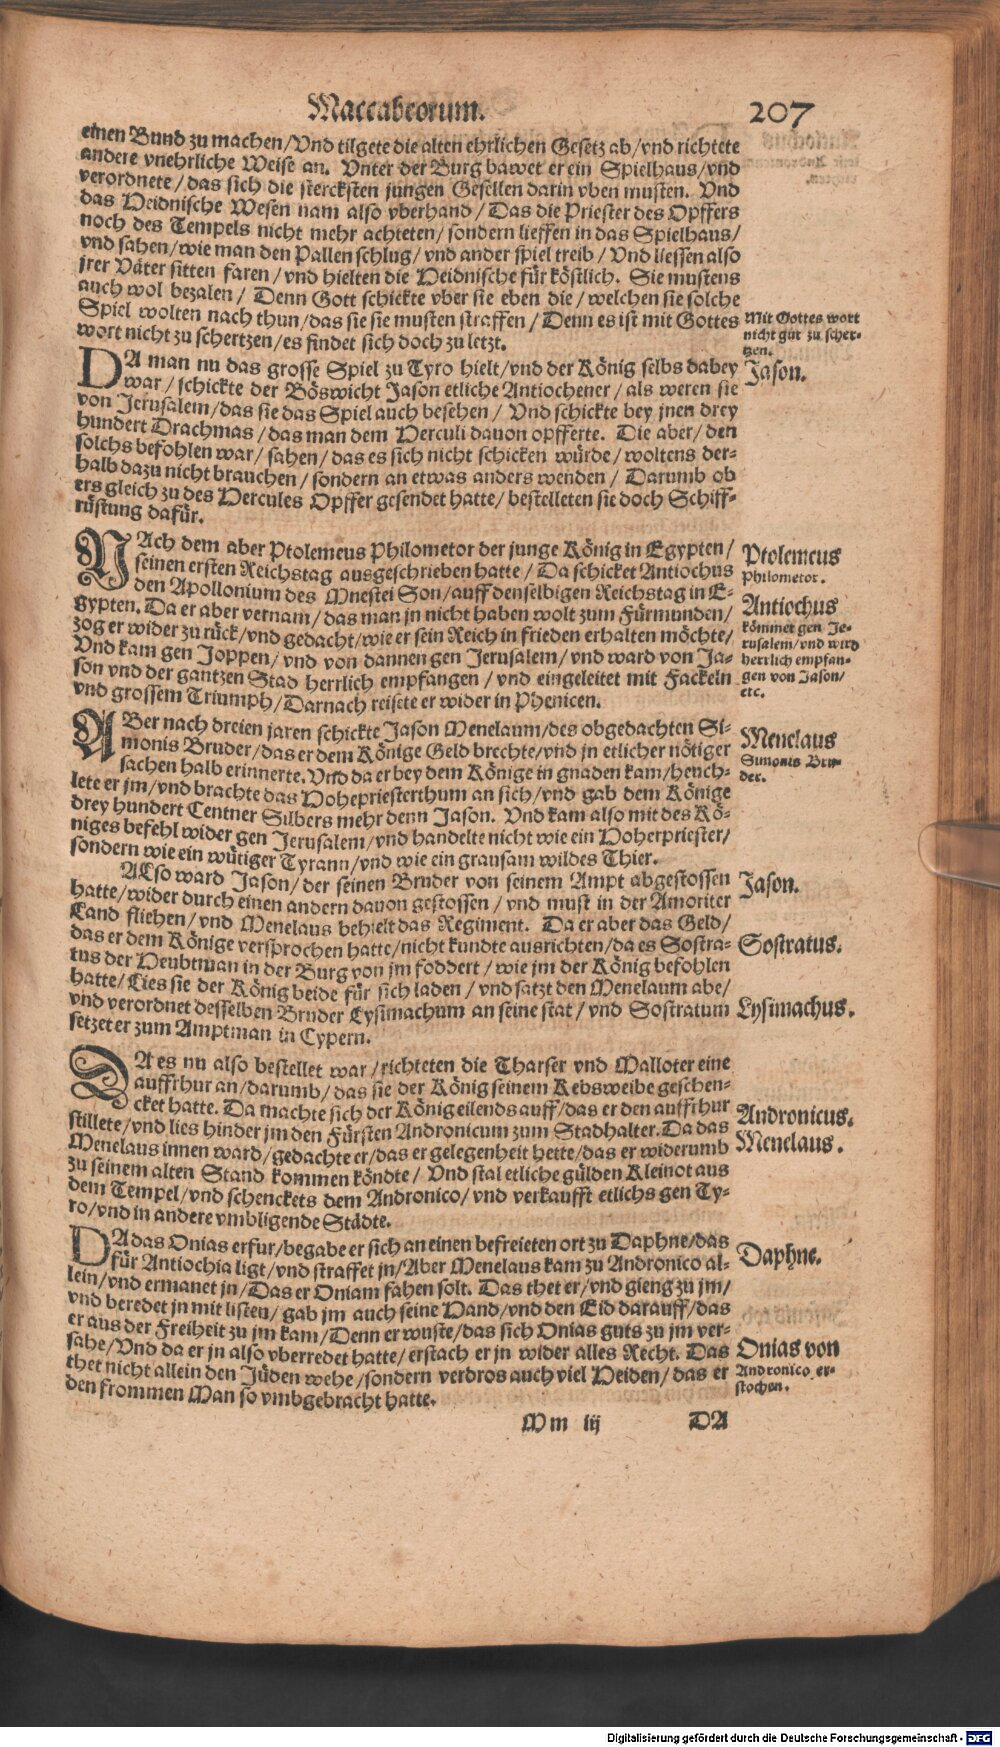 Maccabeorum. 207
einen Bund zu machen/Vnd tilgete die alten ehrlichen Gesetz ab/vnd richtete
andere vnehrliche Weise an. Vnter der Burg bawet er ein Spielhaus/vnd
verordnete/das sich die stercksten jungen Gesellen darin vben musten. Vnd
das Heidnische Wesen nam also vberhand/Das die Priester des Opffers
noch des Tempels nicht mehr achteten/sondern lieffen in das Spielhaus/
vnd sahen/wie man den Pallen schlug/vnd ander spiel treib/Vnd liessen also
jrer Väter sitten faren/vnd hielten die Heidnische für köstlich. Sie mustens
auch wol bezalen/Denn Gott schickte vber sie eben die/welchen sie solche
Spiel wolten nach thun/das sie sie musten straffen/Denn es ist mit Gottes
wort nicht zu schertzen/es findet sich doch zu letzt.
Mit Gottes wort
nicht gut zu scher-
tzen.
DA man nu das grosse Spiel zu Tyro hielt/vnd der König selbs dabey
war/schickte der Böswicht Jason etliche Antiochener/als weren sie
von Jerusalem/das sie das Spiel auch besehen/Vnd schickte bey jnen drey
hundert Drachmas/das man dem Herculi dauon opfferte. Die aber/den
solchs befohlen war/sahen/das es sich nicht schicken würde/woltens der-
halb dazu nicht brauchen/sondern an etwas anders wenden/Darumb ob
ers gleich zu des Hercules Opffer gesendet hatte/bestelleten sie doch Schiff-
rüstung dafür.
Jason.
NAch dem aber Ptolemeus Philometor der junge König in Egypten/
seinen ersten Reichstag ausgeschrieben hatte/Da schicket Antiochus
den Apollonium des Mnestei Son/auff denselbigen Reichstag in E-
gypten. Da er aber vernam/das man jn nicht haben wolt zum Fürmunden/
zog er wider zu rück/vnd gedacht/wie er sein Reich in frieden erhalten möchte/
Vnd kam gen Joppen/vnd von dannen gen Jerusalem/vnd ward von Ja-
son vnd der gantzen Stad herrlich empfangen/vnd eingeleitet mit Fackeln
vnd grossem Triumph/Darnach reisete er wider in Phenicen.
Ptolemeus
Philometor.
Antiochus
kömmet gen Je-
rusalem/vnd wird
herrlich empfan-
gen von Jason/
etc.
ABer nach dreien jaren schickte Jason Menelaum/des obgedachten Si-
monis Bruder/das er dem Könige Geld brechte/vnd jn etlicher nötiger
sachen halb erinnerte. Vnd da er bey dem Könige in gnaden kam/heuch-
lete er jm/vnd brachte das Hohepriesterthum an sich/vnd gab dem Könige
drey hundert Centner Silbers mehr denn Jason. Vnd kam also mit des Kö-
niges befehl wider gen Jerusalem/vnd handelte nicht wie ein Hoherpriester/
sondern wie ein wütiger Tyrann/vnd wie ein grausam wildes Thier.
Menelaus
Simonis Bru-
der.
ALso ward Jason/der seinen Bruder von seinem Ampt abgestossen
hatte/wider durch einen andern dauon gestossen/vnd must in der Amoriter
Land fliehen/vnd Menelaus behielt das Regiment. Da er aber das Geld/
das er dem Könige versprochen hatte/nicht kundte ausrichten/da es Sostra-
tus der Heubtman in der Burg von jm foddert/wie jm der König befohlen
hatte/Lies sie der König beide für sich laden/vnd satzt den Menelaum abe/
vnd verordnet desselben Bruder Lysimachum an seine stat/vnd Sostratum
setzet er zum Amptman in Cypern.
Jason.
Sostratus.
Lysimachus.
DA es nu also bestellet war/richteten die Tharser vnd Malloter eine
auffrhur an/darumb/das sie der König seinem Kebsweibe geschen-
cket hatte. Da machte sich der König eilends auff/das er den auffrhur
stillete/vnd lies hinder jm den Fürsten Andronicum zum Stadhalter. Da das
Menelaus innen ward/gedachte er/das er gelegenheit hette/das er widerumb
zu seinem alten Stand kommen köndte/Vnd stal etliche gülden Kleinot aus
dem Tempel/vnd schenckets dem Andronico/vnd verkaufft etlichs gen Ty-
ro/vnd in andere vmbligende Städte.
Andronicus.
Menelaus.
DA das Onias erfur/begabe er sich an einen befreieten ort zu Daphne/das
für Antiochia ligt/vnd straffet jn/Aber Menelaus kam zu Andronico al-
lein/vnd ermanet jn/Das er Oniam fahen solt. Das thet er/vnd gieng zu jm/
vnd beredet jn mit listen/gab jm auch seine Hand/vnd den Eid darauff/das
er aus der Freiheit zu jm kam/Denn er wuste/das sich Onias guts zu jm ver-
sahe/Vnd da er jn also vberredet hatte/erstach er jn wider alles Recht. Das
thet nicht allein den Jüden wehe/sondern verdros auch viel Heiden/das er
den frommen Man so vmbgebracht hatte.
Daphne.
Onias von
Andronico er-
stochen.
Mm iij DA
Digitalisierung gefördert durch die Deutsche Forschungsgemeinschaft - DFG